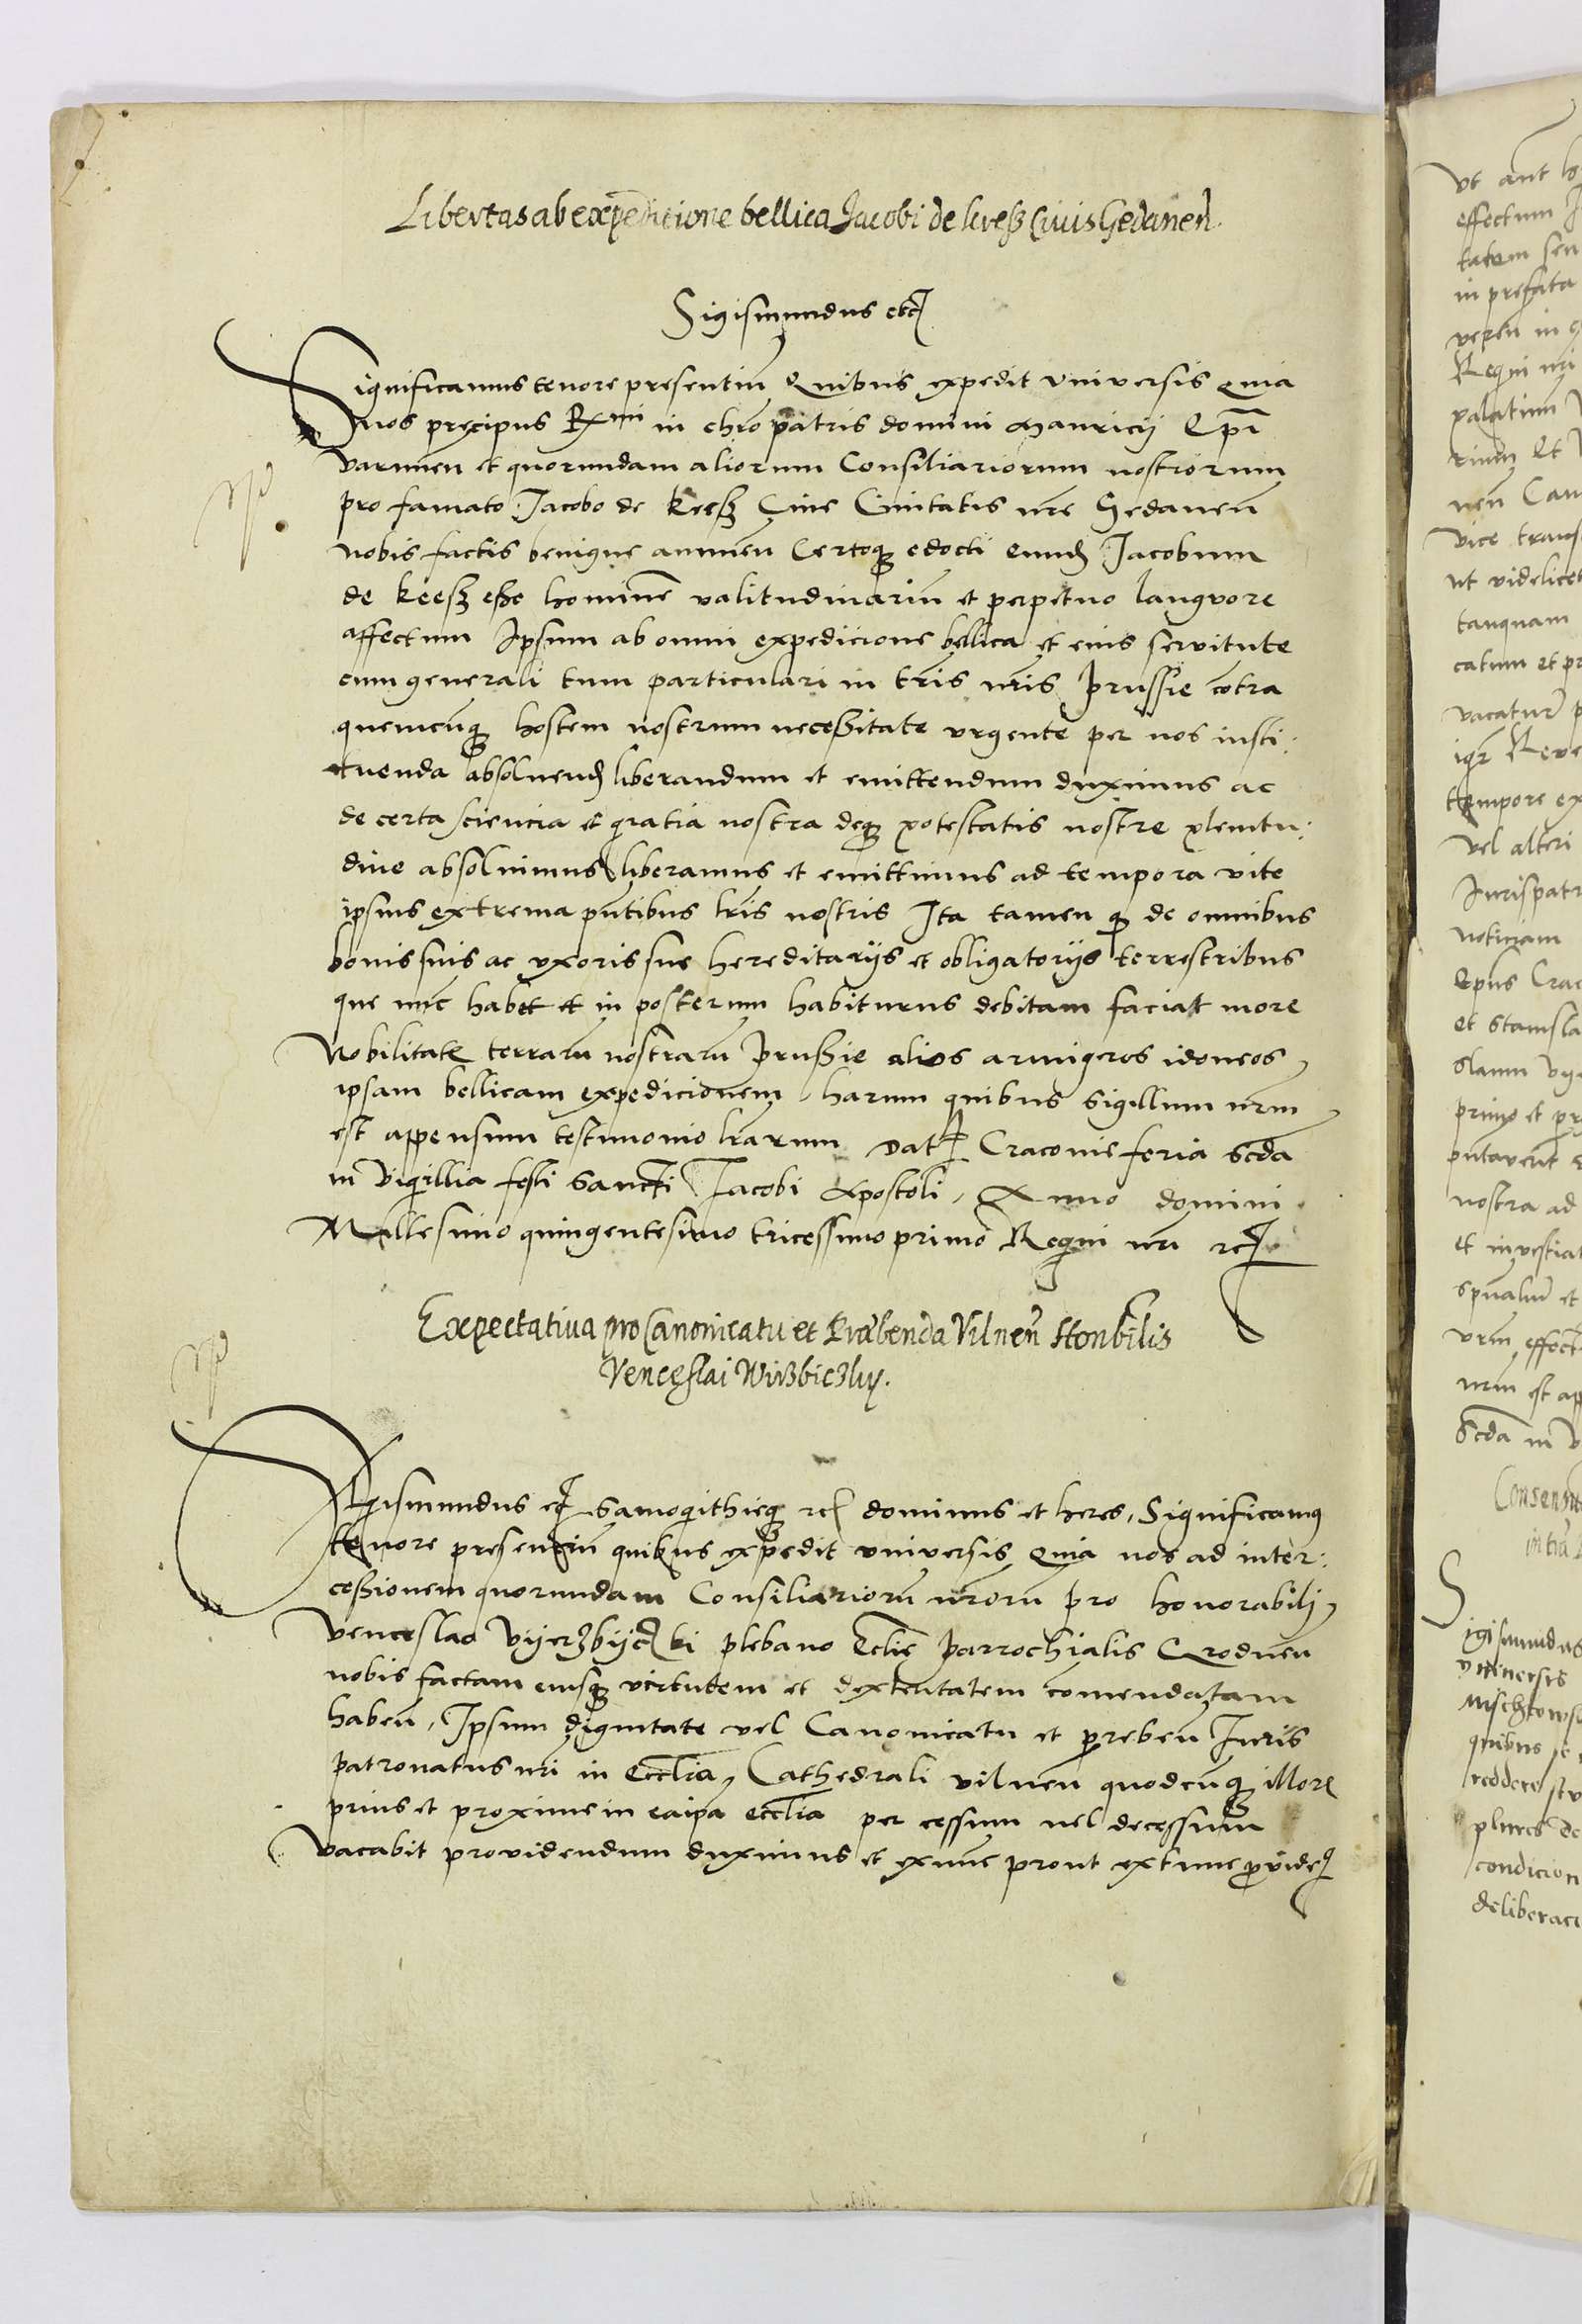 Libertas ab expeditione bellica Jacobi de kreß Civis Gedanen.
Sigismundus etc
Significamus tenore presentiū Quibus expedit vniversis quia
nos precipus Rmi in chro patris domini Mauricij Epi
varmien et quorundam aliorum Consiliariorum nostrorum
pro famato Jacobo de keeß Cive Civitatis nre Gedanen
nobis factis benigne annuen Certoq edocti eund Jacobum
de keeß esse hominē valitudinariū et perpetuo languore
affectum Ipsum ab omni expedicione bellica et eius servitute
cum generali tum particulari in tris nris prussie cōtra
quemcunq hostem nostrum necessitate vrgente per nos insti:
tuenda absoluend liberandum et emittendum duximus ac
de certa sciencia et gratia nostra deq potestatis nostre plenitu:
dine absoluimus liberamus et emittimus ad tempora vite
ipsius extrema pntibus lris nostris Ita tamen q de omnibus
bonis suis ac vxoris sue hereditarijs et obligatorijs terrestribus
que nūc habet et in posterum habiturus debitam faciat more
Nobilitate terrarū nostrarū prussie alios armigeros idoneos
ipsam bellicam expedicionem harum quibus sigillum nrm
est appensum testimonio lrarum Dat Cracovie feria scda
in vigillia festi sancti Jacobi Apostoli, Anno domini
Millesimo quingentesimo tricessimo primo Regni nri rc
Expectativa pro Canonicatu et Præbenda Vilnen Honbilis
Venceslai Wirzbiczky.
Sigismundus et Samogithieq rc dominus et heres, Significamus
tenore presentiū quibus expedit vniversis quia nos ad inter:
cessionem quorundam Consiliariorū nrorū pro honorabilj
venceslao vijerzbijczki plebano Eclie parrochialis Grodnen
nobis factam eiusq virtutem et dexteritatem comendatam
haben, Ipsum dignitate vel Canonicatu et preben Iuris
patronatus nri in Ecclia Cathedrali vilnen quodcunq illorū
prius et proxime in eaipa ecclia per cessum uel decessum
vacabit providendum duximus et exnunc prout extunc provide